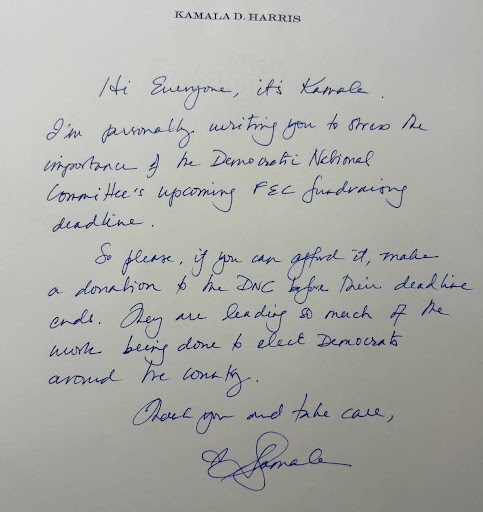 KAMALA D. HARRIS
Hi Everyone, it's Kamala.
I'm personally writing you to stress the
importance of the Democratic National
Committee's upcoming FEC fundraising
deadline.
So please, if you can afford it, make
a donation to the DNC before their deadline
ends. They are leading so much of the
work being done to elect Democrats
around the country.
Thank you and take care,
Kamala